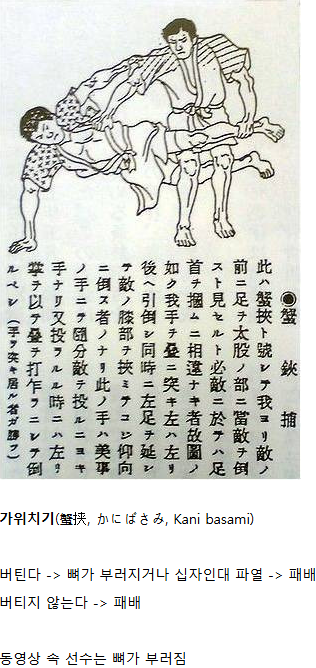 ◉蟹鋏捕
此ハ蟹挾ト號シテ我ヨリ敵ノ
前ニ足ヲ太股ノ部ニ當敵ヲ倒
スト見セルト必敵ニ於テハ足
首ヲ摑ムニ相違ナキ者故圖ノ
如ク我手ヲ疊ニ突キ左ハ左リ
後ヘ引倒シ同時ニ左足ヲ延シ
テ敵ノ膝部ヲ挾ミテコジ仰向
ニ倒ス者ノナリ此ノ手ハ美事
ノ手ニテ隨分敵ヲ投ルニ
手ナリ又投ラルル時ニハ左リ
掌ヲ以テ疊ヲ打乍ラニシテ倒
ルベシ（手ヲ突キ居ル者ガ勝ヲ）
가위치기(蟹挟, かにばさみ, Kani basami)
버틴다 -> 뼈가 부러지거나 십자인대 파열 -> 패배
버티지 않는다 -> 패배
동영상 속 선수는 뼈가 부러짐